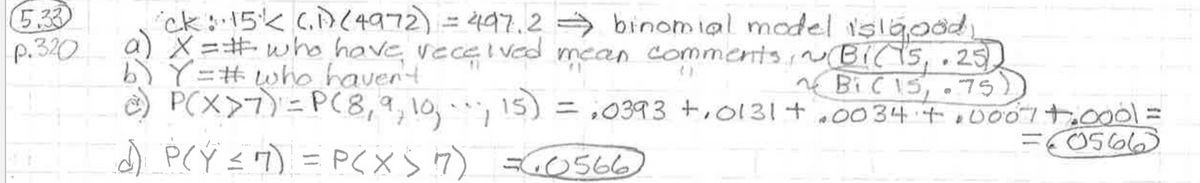 5.33 ck: 15 < (.1)(4972) = 497.2 ⇒ binomial model is good
p.320 a) X = # who have received mean comments, ~ Bi(15, .25)
b) Y = # who haven't " " " ~ Bi(15, .75)
c) P(X>7) = P(8, 9, 10, ..., 15) = .0393 + .0131 + .0034 + .0007 + .0001 =
= .0566
d) P(Y ≤ 7) = P(X > 7) = .0566